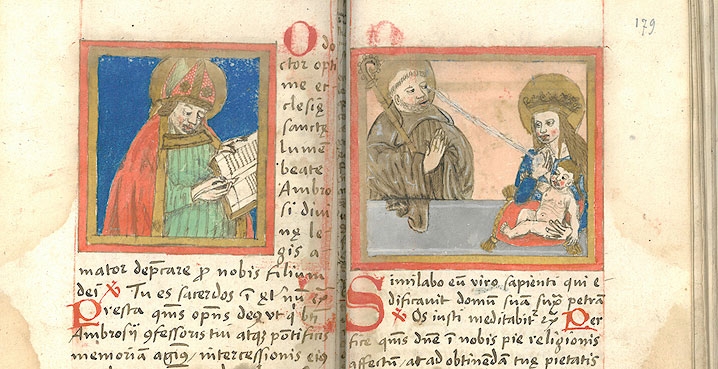 O do
ctor opti
me ec
clesię
sanctę
lumen
beate
Ambro
si divi
nę le
gis a
mator dep̄care p̄ nobis filium
dei ℣ Tu es sacerdos i
Presta q̄ms op̄ns deꝯ vt q̄ bt̄i
Ambrosij ꝯfessoris tui atqꝫ pontificis
memoriam agimꝯ / intercessionis eiꝯ
179
Similabo eū viro sapienti qui e
dificavit domū suā sup̄ petrā
℣ Os iusti meditabitᷣ Per
fice q̄ms dn̄e i nobis pie religionis
affectum / ac ad obtinendā tuę pietatis